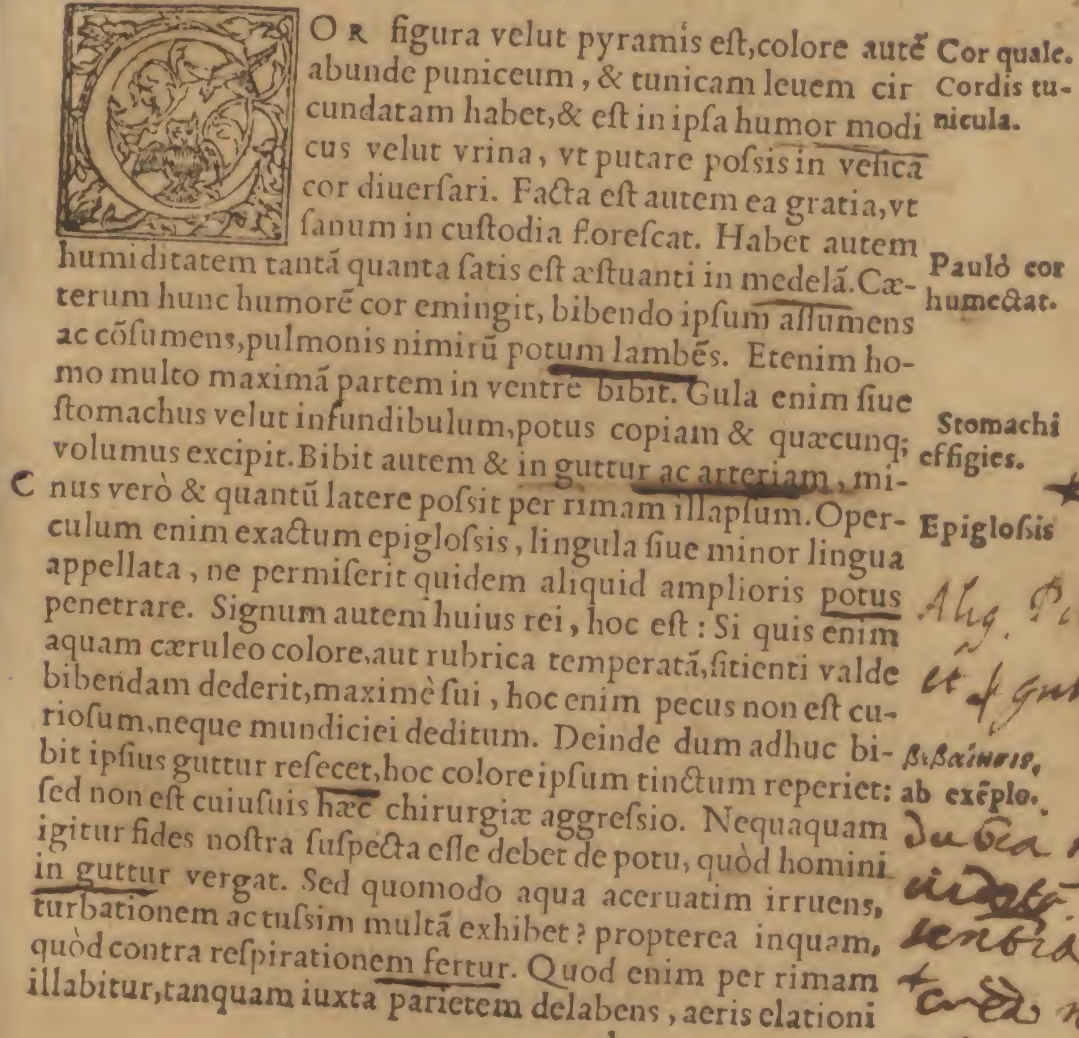 COR figura velut pyramis eſt,colore autē
abunde puniceum, & tunicam leuem cir
cundatam habet,& eſt in ipſa humor modi
cus velut vrina, vt putare poſsis in veſica
cor diuerſari. Facta eſt autem ea gratia,vt
ſanum in cuſtodia floreſcat. Habet autem
humiditatem tantā quanta ſatis eſt æſtuanti in medelā.Cæ-
terum hunc humorē cor emingit, bibendo ipſum aſſumens
ac cōſumens,pulmonis nimirū potum lambēs. Etenim ho-
mo multo maximā partem in ventrē bibit. Gula enim ſiue
ſtomachus velut infundibulum,potus copiam & quæcunq;
volumus excipit.Bibit autem & in guttur ac arteriam, mi-
C nus verò & quantū latere poſsit per rimam illapſum.Oper-
culum enim exactum epigloſsis, lingula ſiue minor lingua
appellata, ne permiſerit quidem aliquid amplioris potus
penetrare. Signum autem huius rei, hoc eſt: Si quis enim
aquam cæruleo colore,aut rubrica temperatā,ſitienti valde
bibendam dederit,maximè ſui, hoc enim pecus non eſt cu-
rioſum,neque mundiciei deditum. Deinde dum adhuc bi-
bit ipſius guttur reſecet,hoc colore ipſum tinctum reperiet:
ſed non eſt cuiuſuis hæc chirurgiæ aggreſsio. Nequaquam
igitur fides noſtra ſuſpecta eſſe debet de potu, quòd homini
in guttur vergat. Sed quomodo aqua aceruatim irruens,
turbationem ac tuſsim multā exhibet? propterea inquam,
quòd contra reſpirationem fertur. Quod enim per rimam
illabitur,tanquam iuxta parietem delabens, aeris elationi
Cor quale.
Cordis tu-
nicula.
Paulò cor
humectat.
Stomachi
effigies.
Epigloſsis
ab exēplo.